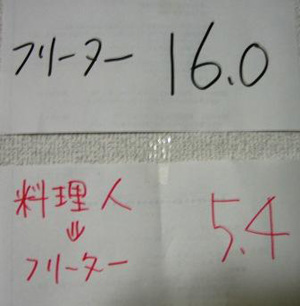 フリーター 16.0
料理人
⇓
フリーター 5.4